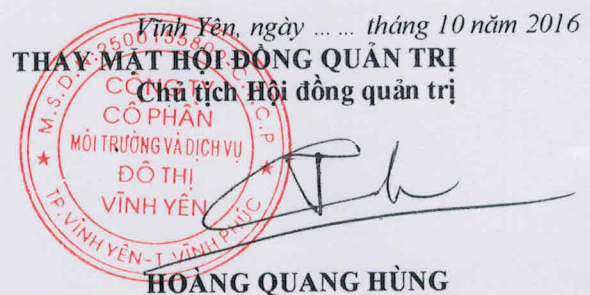 Vĩnh Yên, ngày ... ... tháng 10 năm 2016
THAY MẶT HỘI ĐỒNG QUẢN TRỊ
Chủ tịch Hội đồng quản trị
CÔNG TY
CỔ PHẦN
MÔI TRƯỜNG VÀ DỊCH VỤ
ĐÔ THỊ
VĨNH YÊN
TP. VĨNH YÊN-T. VĨNH PHÚC
HOÀNG QUANG HÙNG